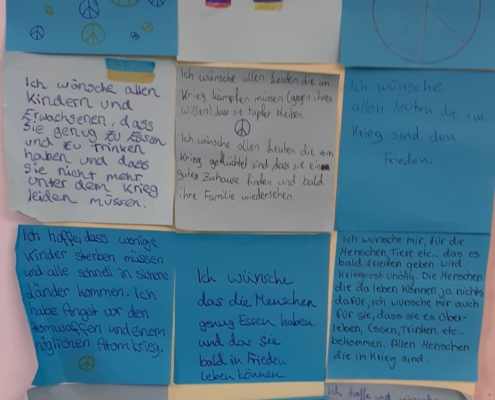 Ich wünsche allen
Kindern und
Erwachsenen, dass
Sie genug Zu Essen
und Zu Trinken
haben und dass
Sie nicht mehr
unter dem Krieg
leiden müssen.
Ich wünsche allen Leuten die im
Krieg kämpfen müssen (gegen ihren
Willen) das sie tapfer bleiben
Ich wünsche allen Leuten die vom
Krieg geflüchtet sind das sie ein
gutes Zuhause finden und bald
ihre Familie wiedersehen.
Ich wünsche
allen leuten die im
Krieg sind den
Frieden.
Ich hoffe, dass wenige
Kinder sterben müssen
und alle schnell in sichere
Länder kommen. Ich
habe Angst vor den
Atomwaffen und einem
möglichen Atomkrieg.
Ich wünsche
das die Menschen
genug Essen haben
und das sie
bald in Frieden
Leben können.
Ich wünsche mir, für die
Menschen, Tiere etc... das es
bald Frieden geben wird
Krieg ist unötig. Die Menschen
die da leben können ja nichts
dafür, ich wünsche mir auch
für sie, dass sie es über-
leben, Essen, Trinken, etc...
bekommen. Allen Menschen
die im Krieg sind.
Ich hoffe und wünsche